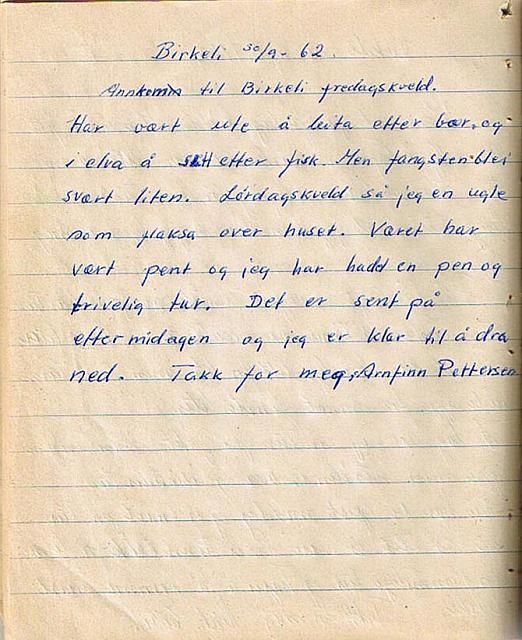 Birkeli 30/9 - 62.
Annkomm til Birkeli fredagskveld.
Har vært ute å leita etter bær, og
i elva å sett etter fisk. Men fangsten blei
svært liten. Lørdagskveld så jeg en ugle
som flaksa over huset. Været har
vært pent og jeg har hadd en pen og
trivelig tur. Det er sent på
eftermidagen og jeg er klar til å dra
ned. Takk for meg, Arnfinn Pettersen